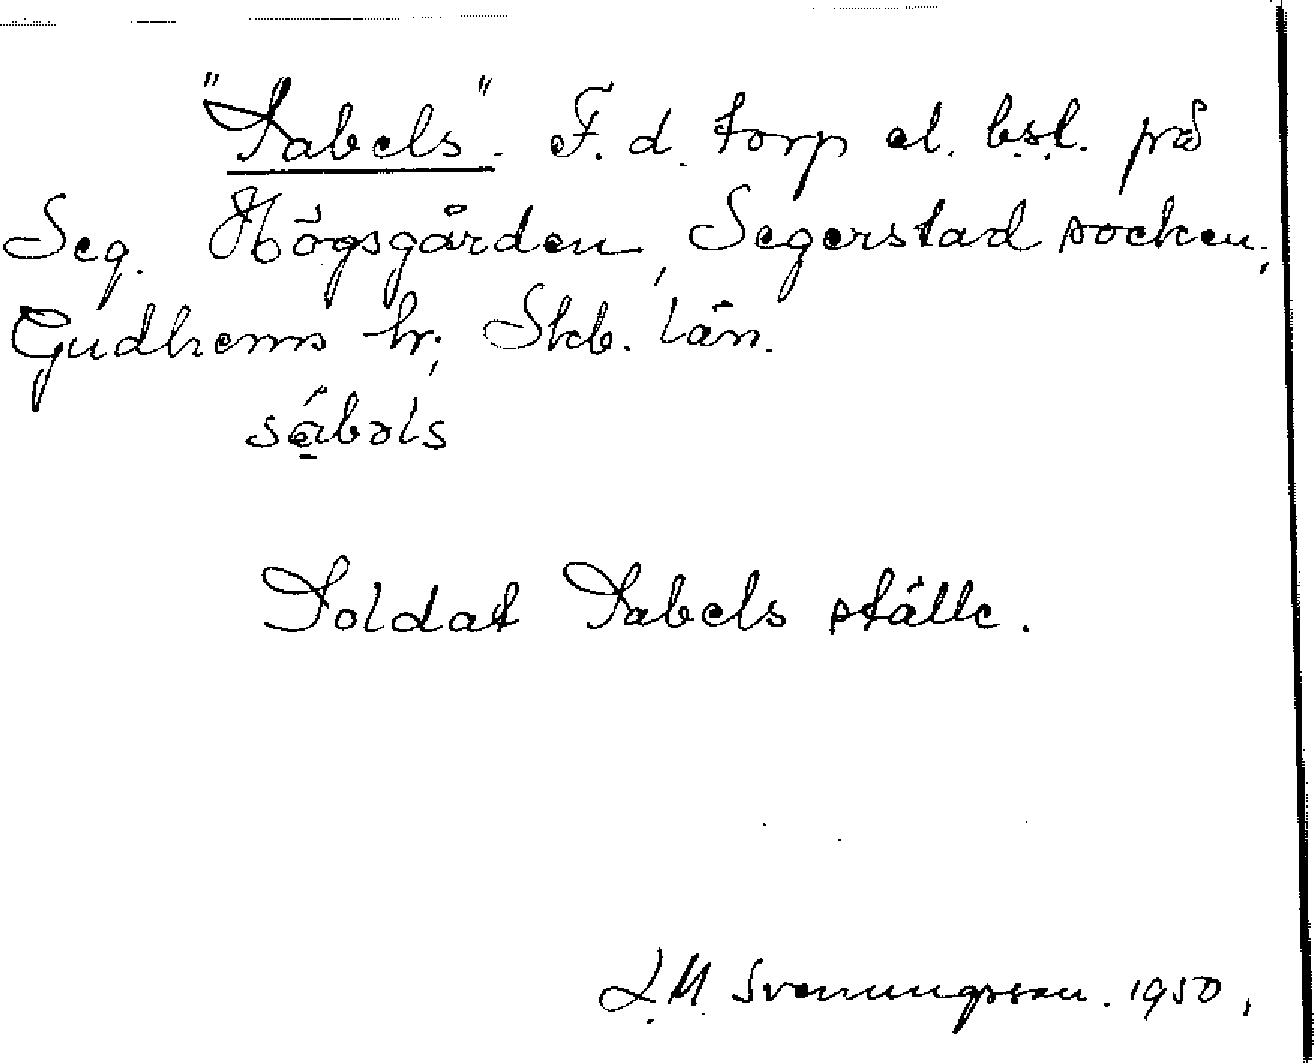 "Sabels". F. d. torp el. bst. på
Seg. Högsgården, Segerstad socken,
Gudhems hr, Skb. län.
sábəls
Soldat Sabels ställe.
L. M. Svenungsson. 1950.